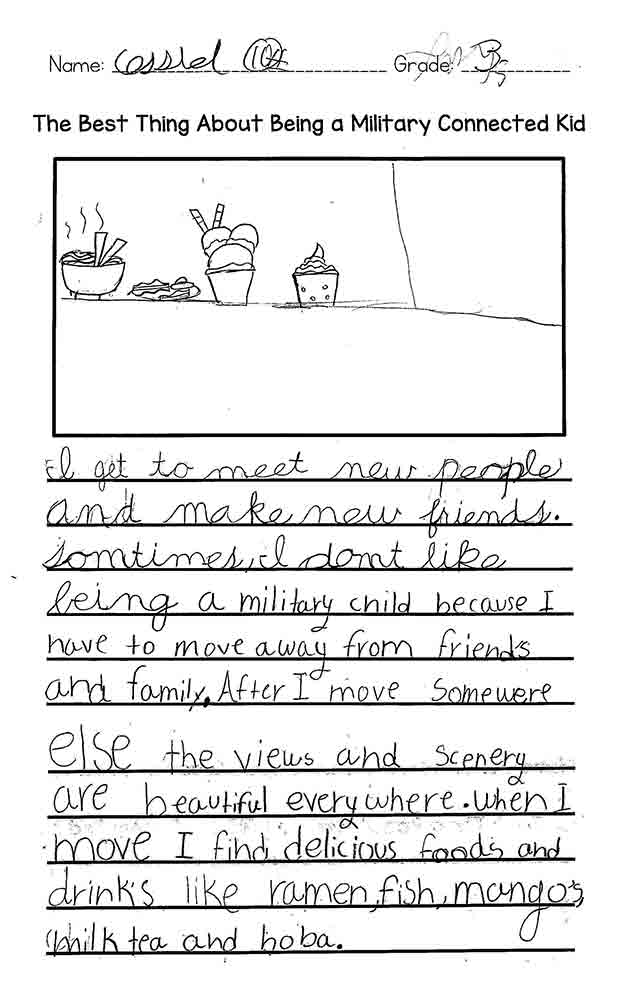 Name: Cassiel
Grade: 5
The Best Thing About Being a Military Connected Kid
I get to meet new people
and make new friends.
somtimes, I dont like
being a military child because I
have to move away from friends
and family. After I move somewere
else the views and scenery
are beautiful everywhere. when I
move I find delicious foods and
drinks like ramen, fish, mangos,
milk tea and boba.